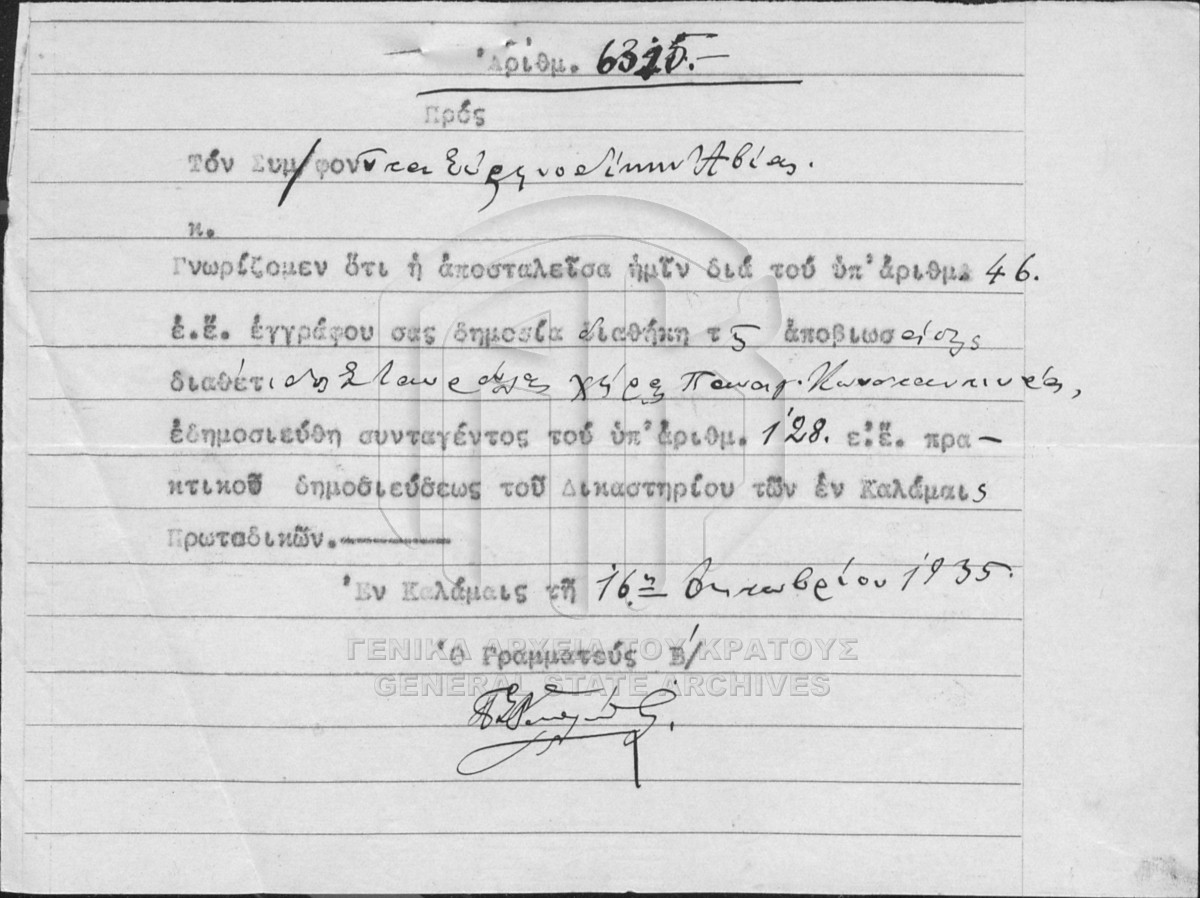 Ἀριθμ. 6315.-
Πρός
Τόν Συμ/φοντα Εἰρηνοδίκην Ἀβίας.
κ.
Γνωρίζομεν ὅτι ἡ ἀποσταλεῖσα ἡμῖν διά τοῦ ὑπ' ἀριθμ. 46.
ἐ.ἔ. ἐγγράφου σας δημοσία διαθήκη τῆς ἀποβιωσάσης
διαθέτιδος Σταυρούλας χήρας Παναγ. Κωνσταντινέα,
ἐδημοσιεύθη συνταγέντος τοῦ ὑπ' ἀριθμ. 128. ἐ.ἔ. πρα-
κτικοῦ δημοσιεύσεως τοῦ Δικαστηρίου τῶν ἐν Καλάμαις
Πρωτοδικῶν.
Ἐν Καλάμαις τῇ 16ῃ Ὀκτωβρίου 1935.
ΓΕΝΙΚΑ ΑΡΧΕΙΑ ΤΟΥ ΚΡΑΤΟΥΣ
Ὁ Γραμματεύς Β/
GENERAL STATE ARCHIVES